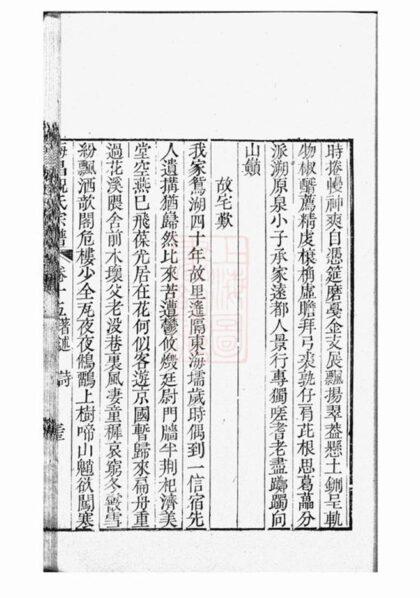 時捲幔神爽自憑筵磨戞金支戾飄揚翠葢懸土鉶呈軌
物椒罄薦精虔榱桷虛瞻拜弓裘孰仔肩芘根思葛藟分
派溯原泉小子承家遠都人景行專獨嗟耆老盡躑躅向
山巔
故宅歎
我家鴛湖四十年故里遥隔東海壖歲時偶到一信宿先
人遺搆猶歸然比來苦遭鬱攸燬廷尉門牆半荆杞濟美
堂空燕巳飛葆光居在花何似客遊京國暫歸來扁舟重
過花溪隈舍前木壞父老没巷裏風凄童穉哀窮冬霰雪
紛飄洒歌閣危樓少全瓦夜夜鵂鶹上樹啼山魈欲闖寒
海昌祝氏宗譜 卷十五著述 詩
上海圖